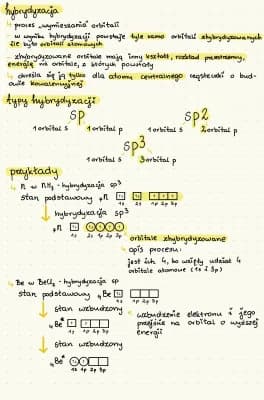 hybrydyzacja
- proces „wymieszania" orbitali
- w wyniku hybrydyzacji powstaje tyle samo orbitali zhybrydyzowanych
ile było orbitali atomowych
- zhybrydyzowane orbitale mają inny kształt, rozkład przestrzenny,
energię niż orbitale, z których powstały
- określa się ją tylko dla atomu centralnego cząsteczki o bud-
owie kowalencyjnej
typy hybrydyzacji
sp
1 orbital s 1 orbital p
sp2
1 orbital s 2 orbital p
sp3
1 orbital s 3 orbital p
przykłady
N w NH3 - hybrydyzacja sp3
stan podstawowy 7N
1s 2s 1p 2p 3p
hybrydyzacja sp3
7N
1s 2s 1p 2p 3p
orbitale zhybrydyzowane
opis procesu:
jest ich 4, bo wzięły udział 4
orbitale atomowe (1s i 3p)
Be w BeH2 - hybrydyzacja sp
stan podstawowy 4Be
1s 2s 1p 2p 3p
stan wzbudzony
4Be*
1s 2s 1p 2p 3p
wzbudzenie elektronu i jego
przejście na orbital o wyższej
energii
stan wzbudzony
4Be*
1s 2s 1p 2p 3p